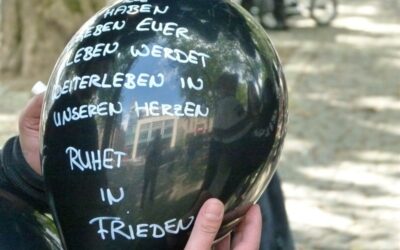 HABEN
EUER
LEBEN WERDET
WEITERLEBEN IN
UNSEREN HERZEN
RUHET
IN
FRIEDEN